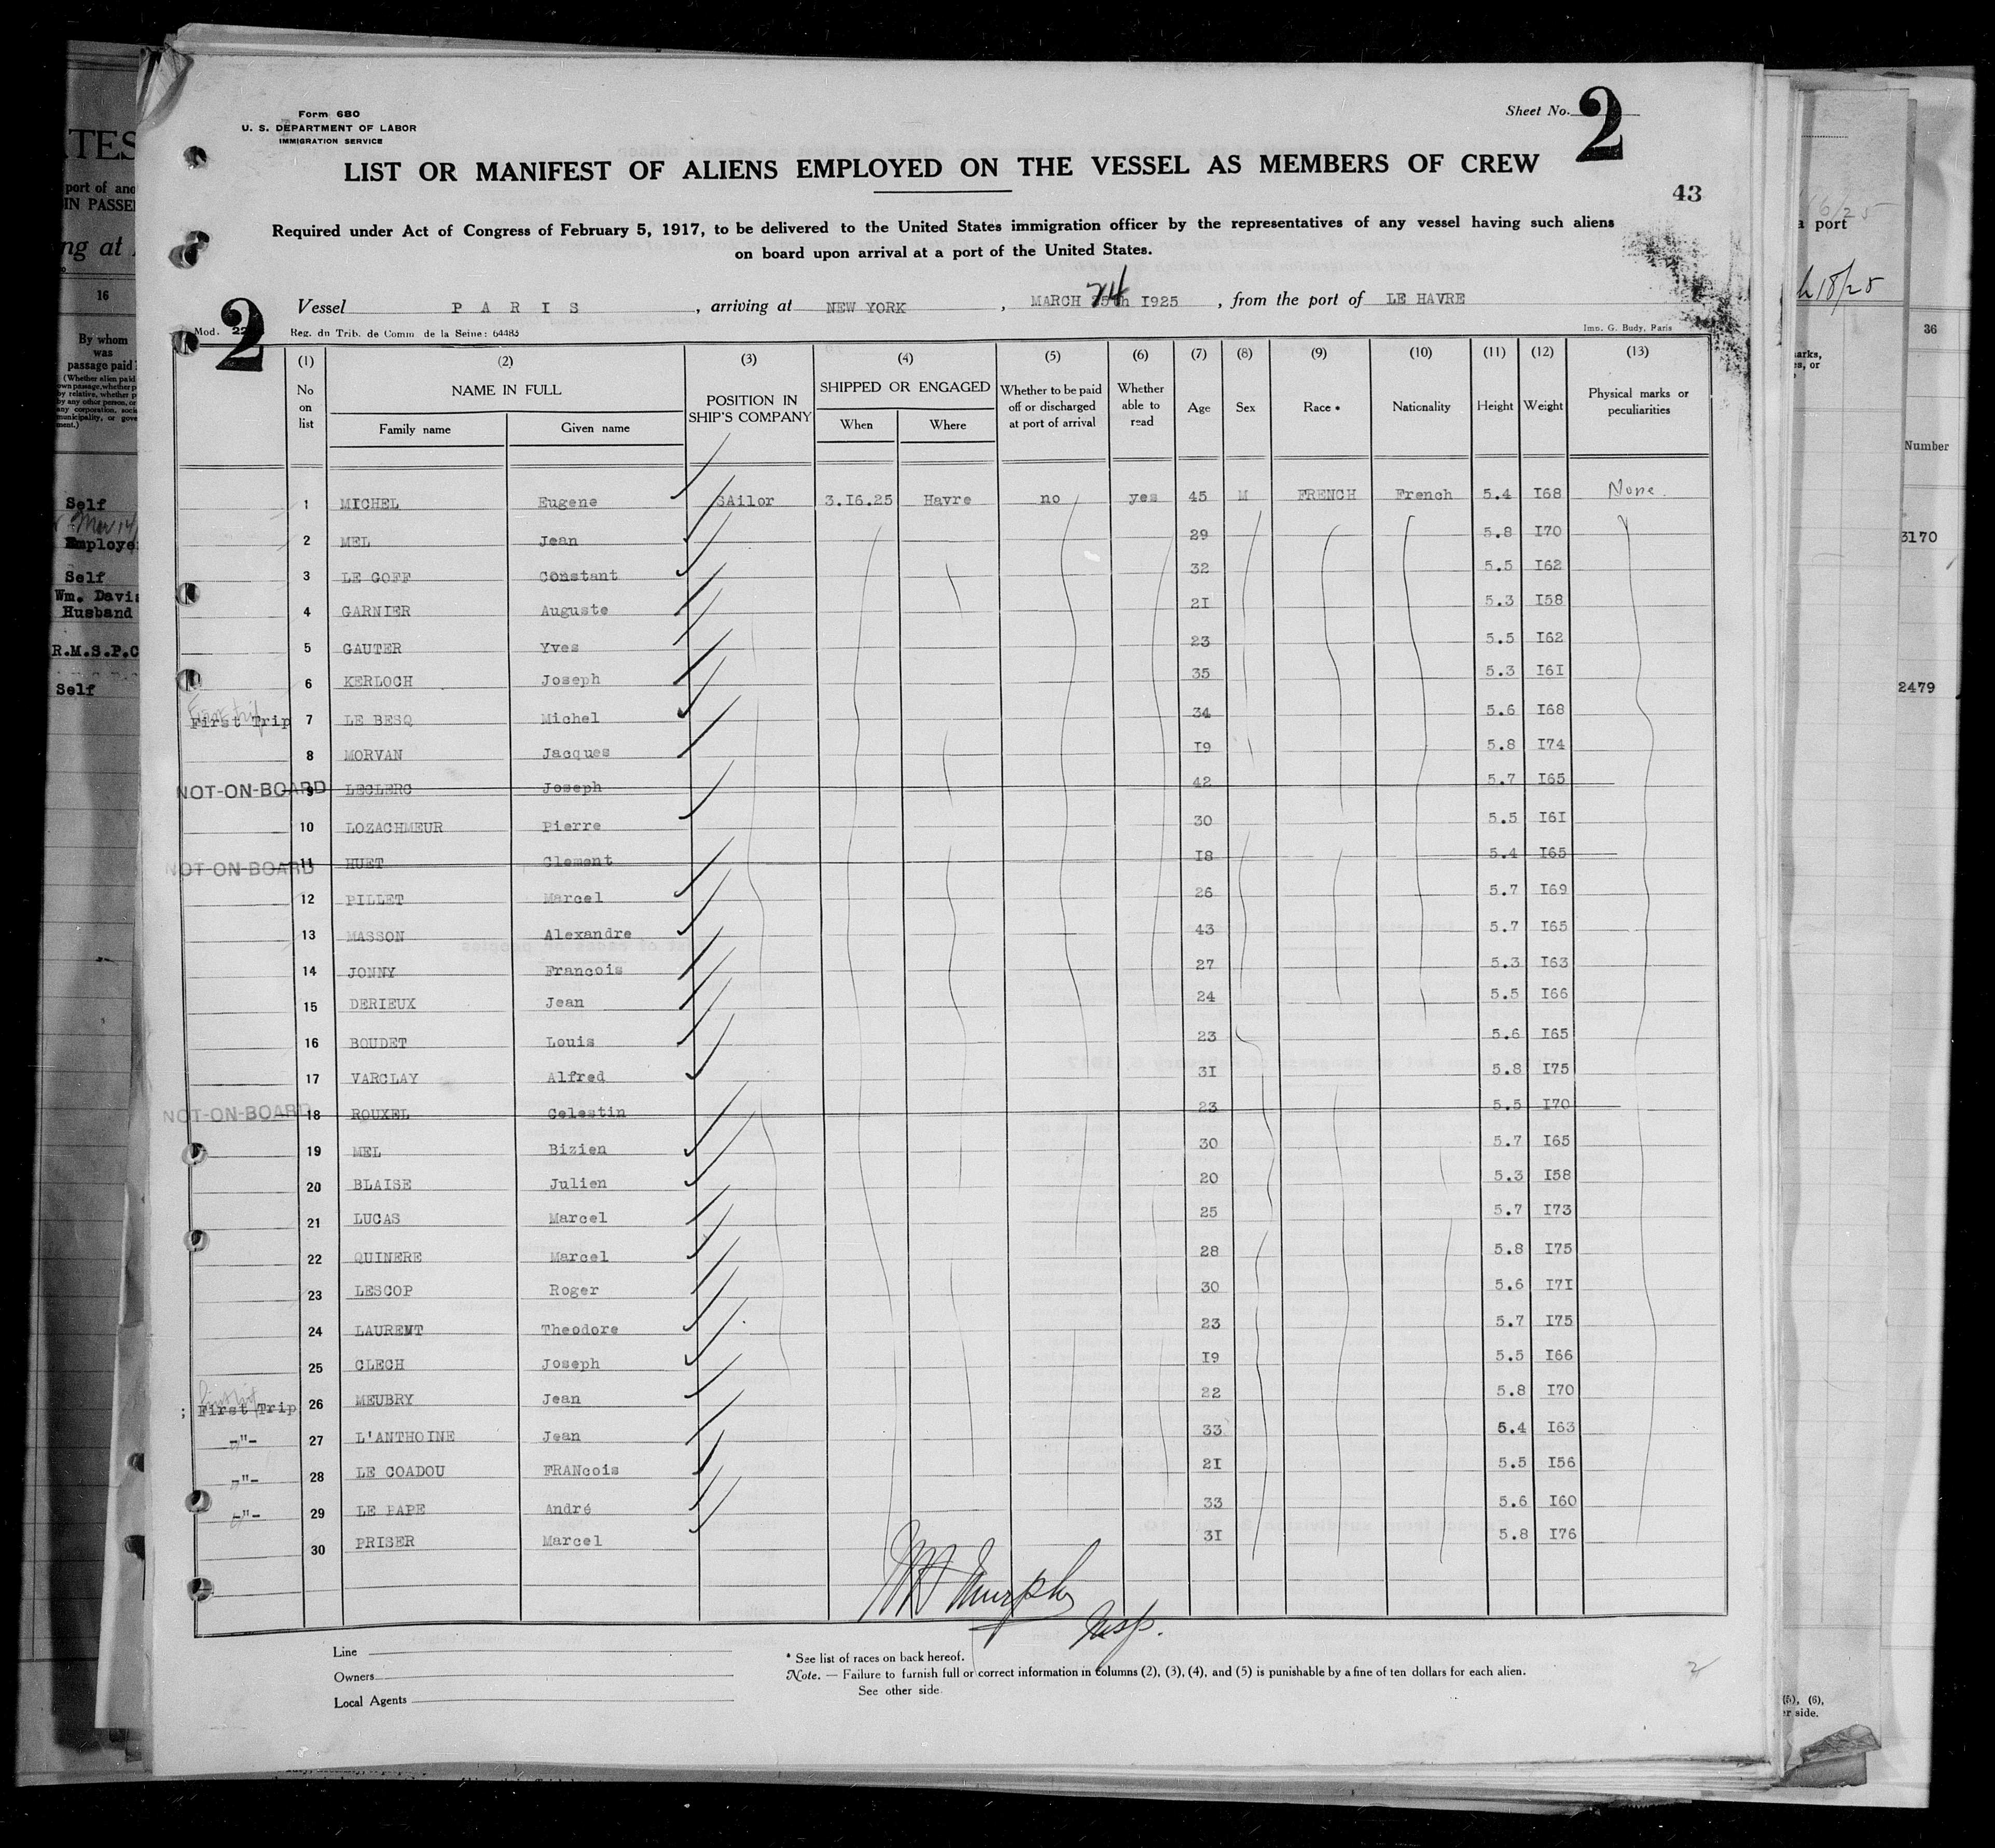 Form 680
U. S. DEPARTMENT OF LABOR
IMMIGRATION SERVICE
Sheet No. 2
LIST OR MANIFEST OF ALIENS EMPLOYED ON THE VESSEL AS MEMBERS OF CREW
43
Required under Act of Congress of February 5, 1917, to be delivered to the United States immigration officer by the representatives of any vessel having such aliens
on board upon arrival at a port of the United States.
Vessel P A R I S , arriving at NEW YORK , MARCH 24 1925 , from the port of LE HAVRE
2
Mod. 22 Reg. du Trib. de Comm de la Seine: 64483 Imp. G. Budy, Paris
(1) (2) (3) (4) (5) (6) (7) (8) (9) (10) (11) (12) (13)
No on list NAME IN FULL Family name Given name POSITION IN SHIP'S COMPANY SHIPPED OR ENGAGED When Where Whether to be paid off or discharged at port of arrival Whether able to read Age Sex Race * Nationality Height Weight Physical marks or peculiarities
1 MICHEL Eugene SAilor 3.I6.25 Havre no yes 45 M FRENCH French 5.4 I68 None.
2 MEL Jean 29 5.8 I70
3 LE GOFF Constant 32 5.5 I62
4 GARNIER Auguste 2I 5.3 I58
5 GAUTER Yves 23 5.5 I62
6 KERLOCH Joseph 35 5.3 I6I
First Trip 7 LE BESQ Michel 34 5.6 I68
8 MORVAN Jacques I9 5.8 I74
NOT-ON-BOARD 9 LECLERC Joseph 42 5.7 I65
10 LOZACHMEUR Pierre 30 5.5 I6I
NOT-ON-BOARD 11 HUET Clement I8 5.4 I65
12 PILLET Marcel 26 5.7 I69
13 MASSON Alexandre 43 5.7 I65
14 JONNY Francois 27 5.3 I63
15 DERIEUX Jean 24 5.5 I66
16 BOUDET Louis 23 5.6 I65
17 VARCLAY Alfred 3I 5.8 I75
NOT-ON-BOARD 18 ROUXEL Celestin 23 5.5 I70
19 MEL Bizien 30 5.7 I65
20 BLAISE Julien 20 5.3 I58
21 LUCAS Marcel 25 5.7 I73
22 QUINERE Marcel 28 5.8 I75
23 LESCOP Roger 30 5.6 I7I
24 LAURENT Theodore 23 5.7 I75
25 CLECH Joseph I9 5.5 I66
First Trip 26 MEUBRY Jean 22 5.8 I70
-"- 27 L'ANTHOINE Jean 33 5.4 I63
-"- 28 LE COADOU FRANcois 2I 5.5 I56
-"- 29 LE PAPE André 33 5.6 I60
30 PRISER Marcel 3I 5.8 I76
Murphy
Insp.
Line
Owners
Local Agents
* See list of races on back hereof.
Note. — Failure to furnish full or correct information in columns (2), (3), (4), and (5) is punishable by a fine of ten dollars for each alien.
See other side.
2
16
By whom
was
passage paid
Self
Self
Wm. Davis
Husband
R.M.S.P.C
Self
a port
36
Number
3170
2479
(5), (6),
er side.